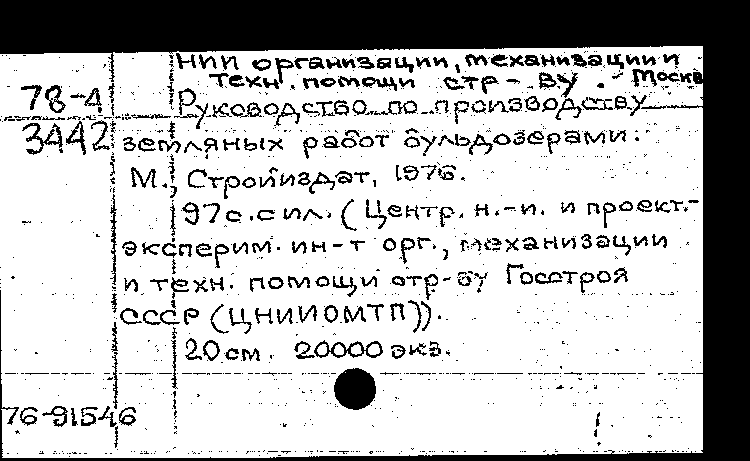 НИИ организации, механизации и
техн. помощи стр-ву. - Москва
78-4 Руководство по производству
3442 земляных работ бульдозерами.
М., Стройиздат, 1976.
97 с. с ил. (Центр. н.-и. и проект.-
эксперим. ин-т орг., механизации
и техн. помощи стр-ву Госстроя
СССР (ЦНИИОМТП)).
20 см. 20000 экз.
76-91546